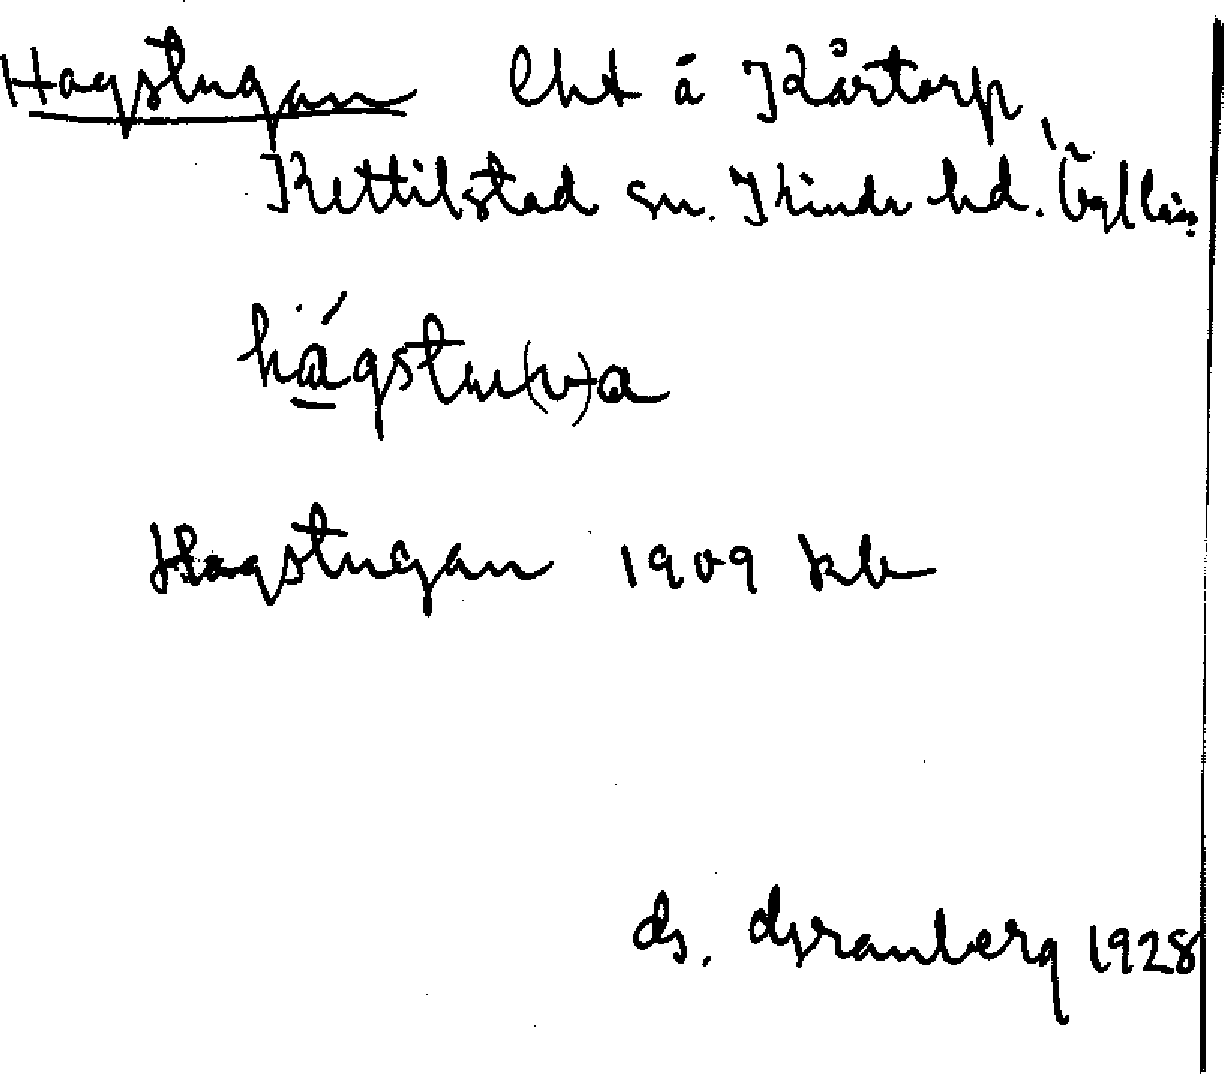 Hagstugan lht å Kårtorp,
Kettilstad sn. Kinds hd. Ögl län
hágstu(v)a
Hagstugan 1909 kb
G. Granberg 1928